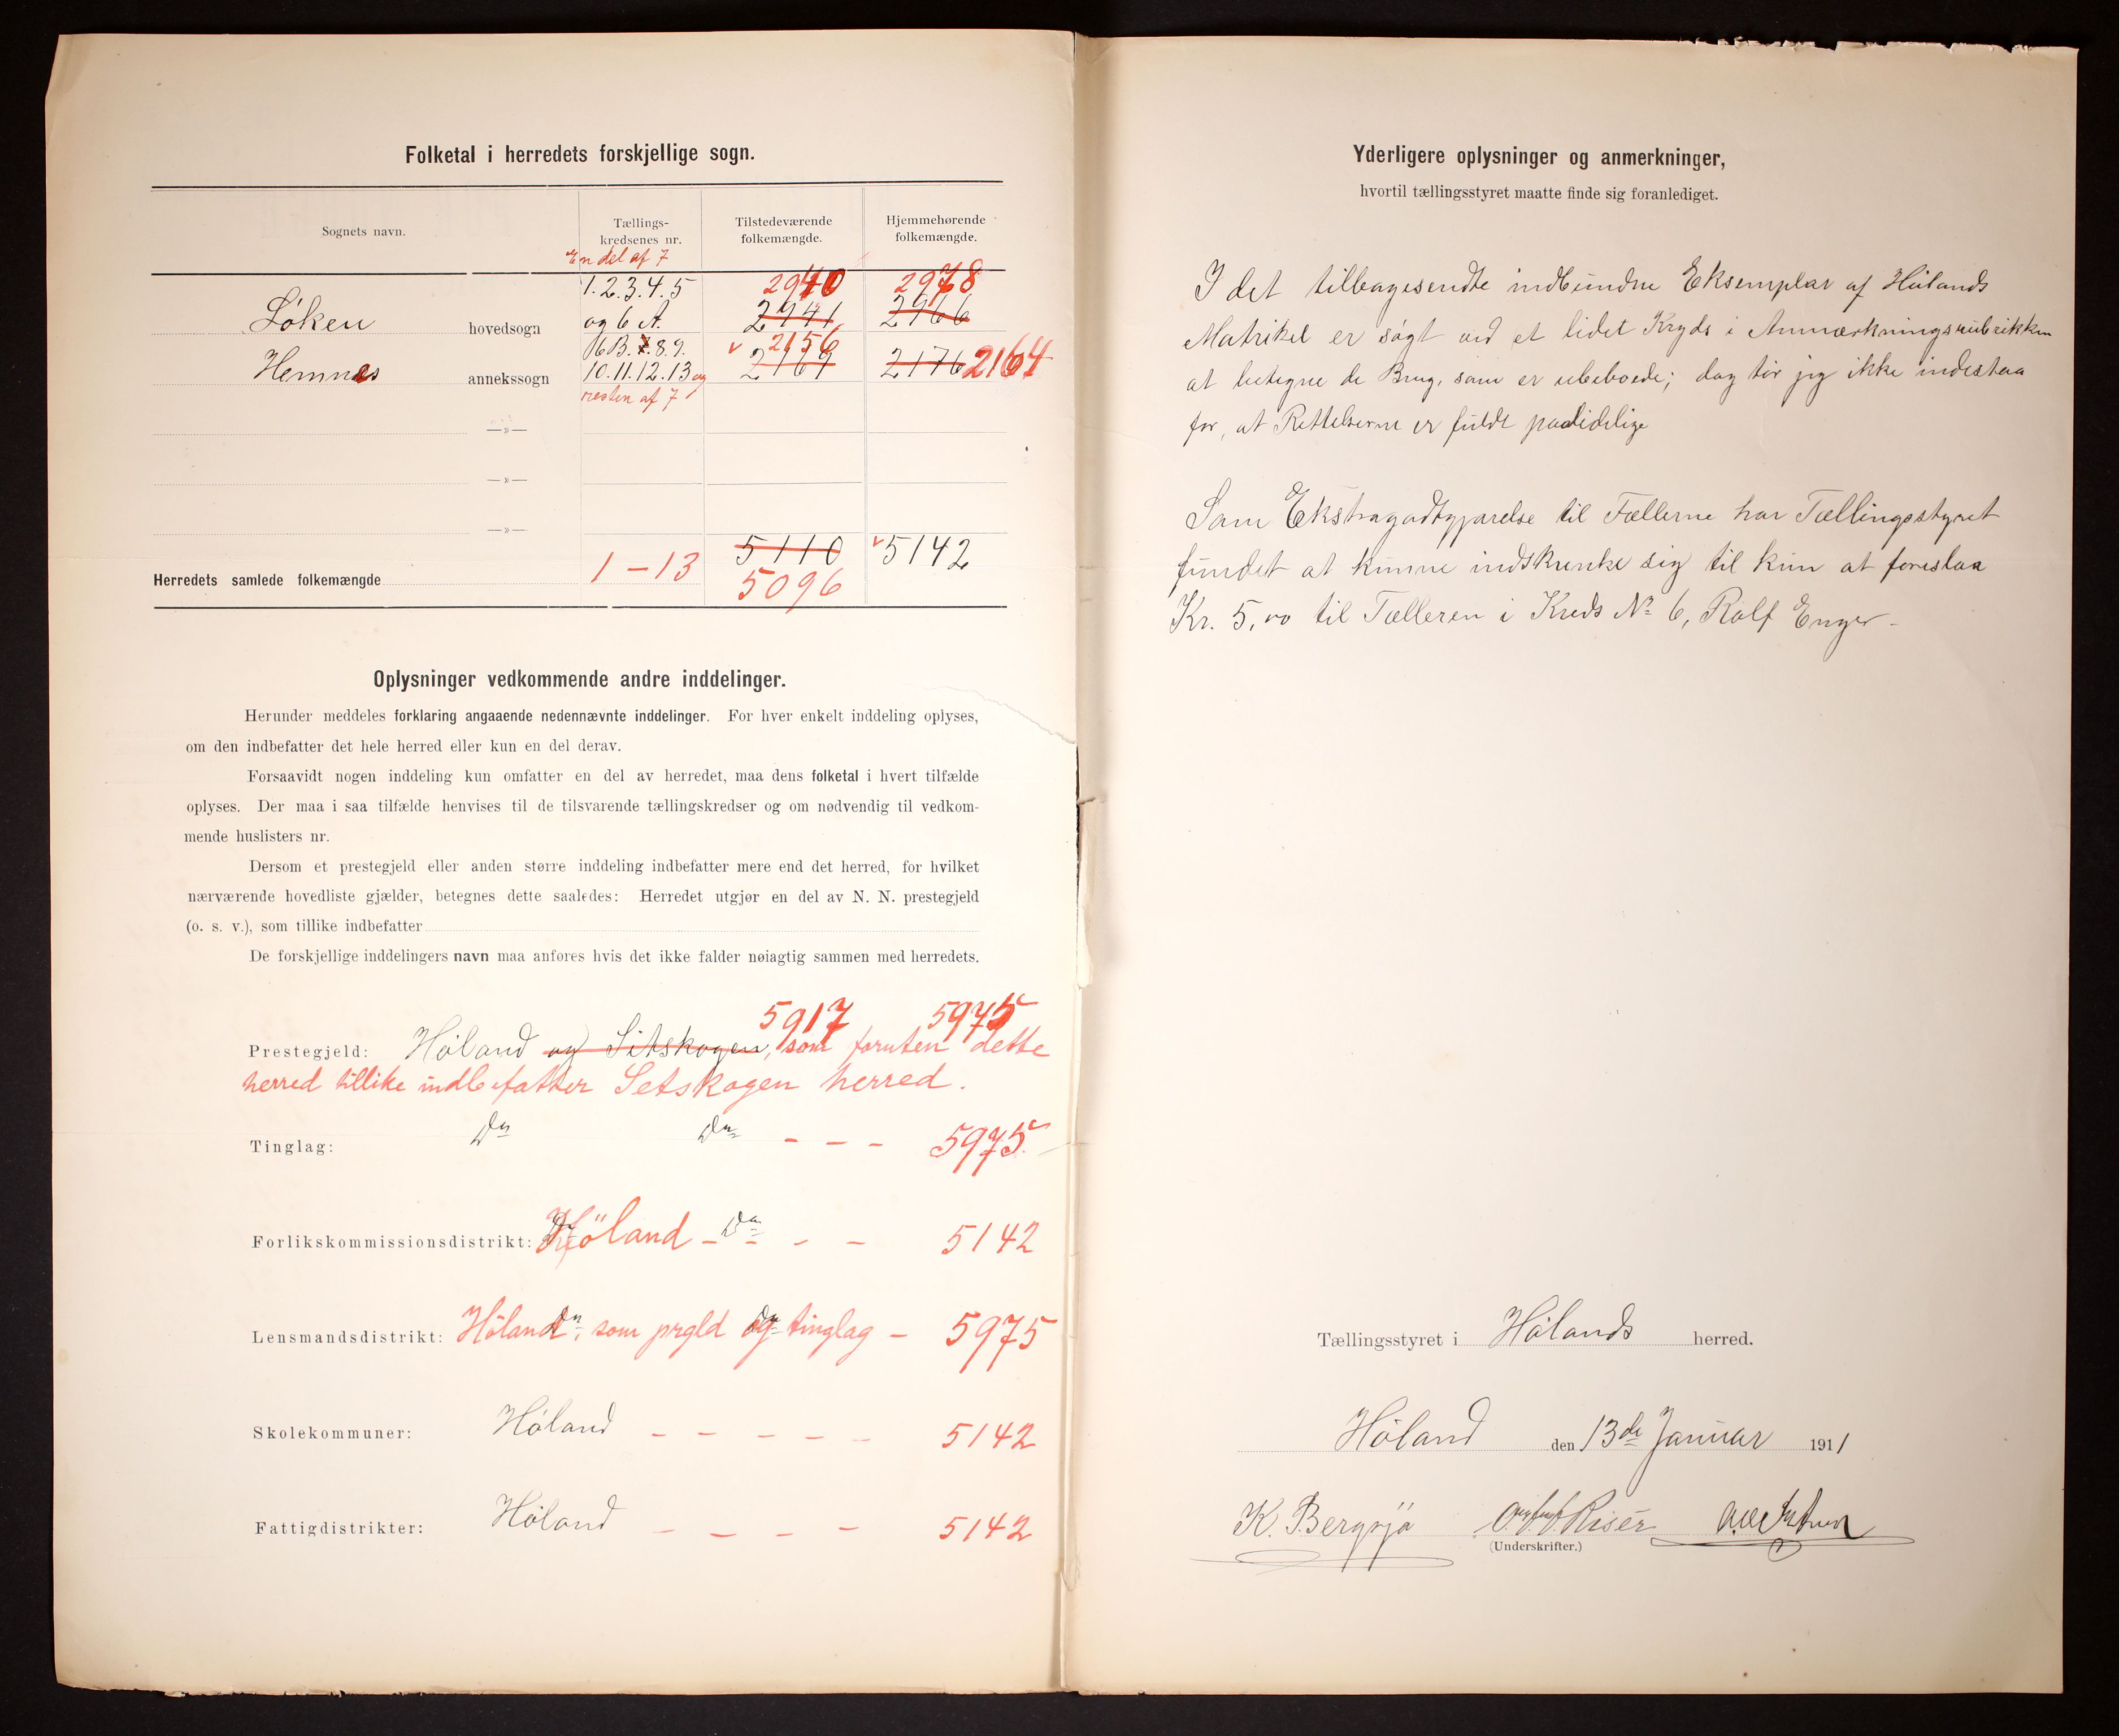 Folketal i herredets forskjellige sogn.
Sognets navn.
Tællings-
kredsenes nr.
Tilstedeværende
folkemængde.
Hjemmehørende
folkemængde.
En del af 7
1.2.3.4.5 2940 2978
Løken hovedsogn og 6 A. 2941 2966
6B.7.8.9. 2156
Hemnes annekssogn 10.11.12.13 og 2169 2176 2164
resten af 7
—»—
—»—
—»—
5110 5142
Herredets samlede folkemængde 1–13 5096
Oplysninger vedkommende andre inddelinger.
Herunder meddeles forklaring angaaende nedennævnte inddelinger. For hver enkelt inddeling oplyses,
om den indbefatter det hele herred eller kun en del derav.
Forsaavidt nogen inddeling kun omfatter en del av herredet, maa dens folketal i hvert tilfælde
oplyses. Der maa i saa tilfælde henvises til de tilsvarende tællingskredser og om nødvendig til vedkom-
mende huslisters nr.
Dersom et prestegjeld eller anden større inddeling indbefatter mere end det herred, for hvilket
nærværende hovedliste gjælder, betegnes dette saaledes: Herredet utgjør en del av N. N. prestegjeld
(o. s. v.), som tillike indbefatter
De forskjellige inddelingers navn maa anføres hvis det ikke falder nøiagtig sammen med herredets.
5917 5975
Prestegjeld: Høland og Sitskogen, som foruten dette
herred tillike indbefatter Setskogen herred.
Tinglag: Do Do - - - 5975
Forlikskommissionsdistrikt: Höland - Do - - 5142
Lensmandsdistrikt: Höland, som prgld og tinglag - 5975
Skolekommuner: Høland - - - - - 5142
Fattigdistrikter: Høland - - - - 5142
Yderligere oplysninger og anmerkninger,
hvortil tællingsstyret maatte finde sig foranlediget.
I det tilbagesendte indbundne Eksemplar af Hølands
Matrikel er søgt ved et lidet Kryds i Anmærkningsrubrikken
at betegne de Brug, som er ubeboede; dog tør jeg ikke indestaa
for, at Rettelserne er fuldt paalidelige
Som Ekstragodtgjørelse til Tællerne har Tællingsstyret
fundet at kunne indskrænke sig til kun at foreslaa
Kr. 5,00 til Tælleren i Kreds No 6, Rolf Enger -
Tællingsstyret i Hølands herred.
Høland den 13de Januar 1911
K. Bergsjø Riser
(Underskrifter.)